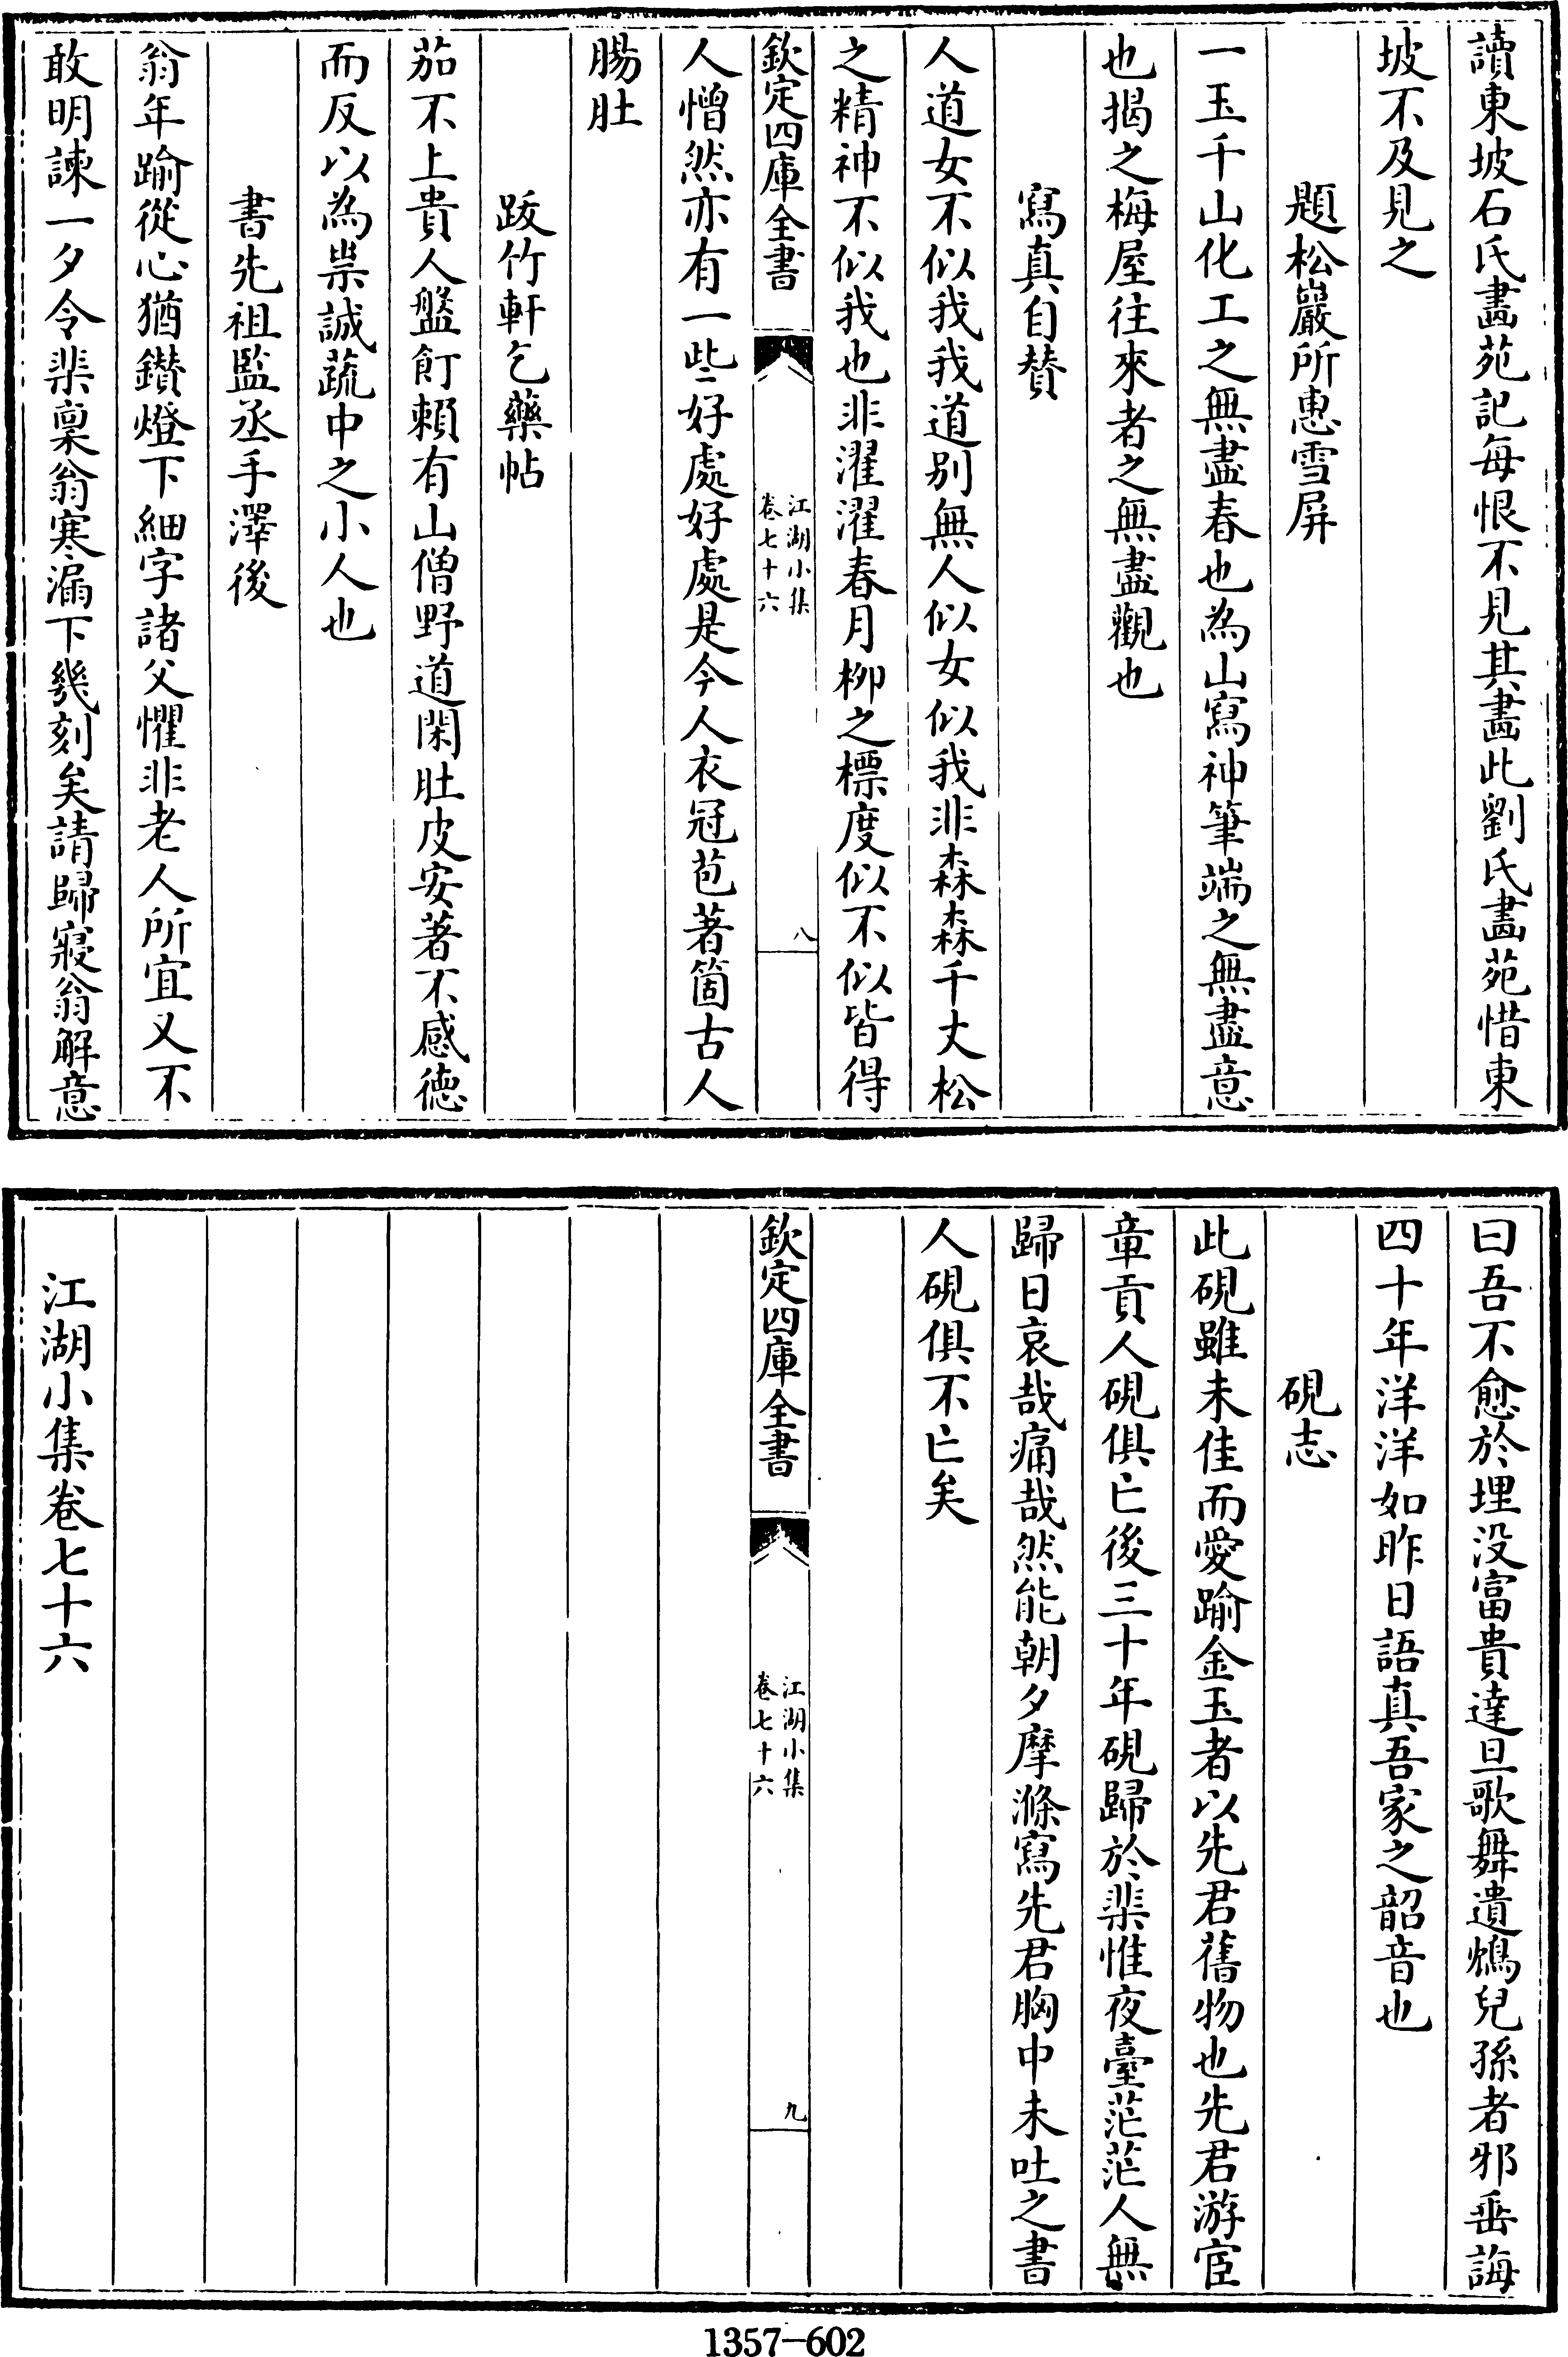 讀東坡石氏畫苑記每恨不見其畫此劉氏畫苑惜東
坡不及見之
題松巖所惠雪屏
一玉千山化工之無盡春也為山寫神筆端之無盡意
也揭之梅屋往來者之無盡觀也
寫真自贊
人道女不似我我道别無人似女似我非森森千丈松
之精神不似我也非濯濯春月柳之標度似不似皆得
欽定四庫全書
江湖小集
卷七十六
八
人憎然亦有一些好處好處是今人衣冠苞著箇古人
腸肚
跋竹軒乞藥帖
茄不上貴人盤飣頼有山僧野道閑肚皮安著不感德
而反以為祟誠蔬中之小人也
書先祖監丞手澤後
翁年踰從心猶鑚燈下細字諸父懼非老人所宜又不
敢明諫一夕令棐稟翁寒漏下幾刻矣請歸寢翁解意
曰吾不愈於埋没富貴達旦歌舞遺鴆兒孫者邪垂誨
四十年洋洋如昨日語真吾家之韶音也
硯志
此硯雖未佳而愛踰金玉者以先君舊物也先君游宦
章貢人硯俱亡後三十年硯歸於棐惟夜臺茫茫人無
歸日哀哉痛哉然能朝夕摩滌寫先君胸中未吐之書
人硯俱不亡矣
欽定四庫全書
江湖小集
卷七十六
九
江湖小集卷七十六
1357-602